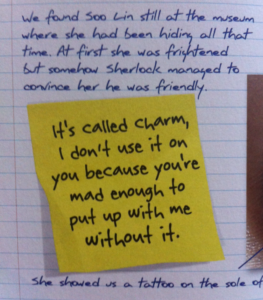 We found Soo Lin still at the museum
where she had been hiding all that
time. At first she was frightened
but somehow Sherlock managed to
convince her he was friendly.
It's called charm,
I don't use it on
you because you're
mad enough to
put up with me
without it.
She showed us a tattoo on the sole of